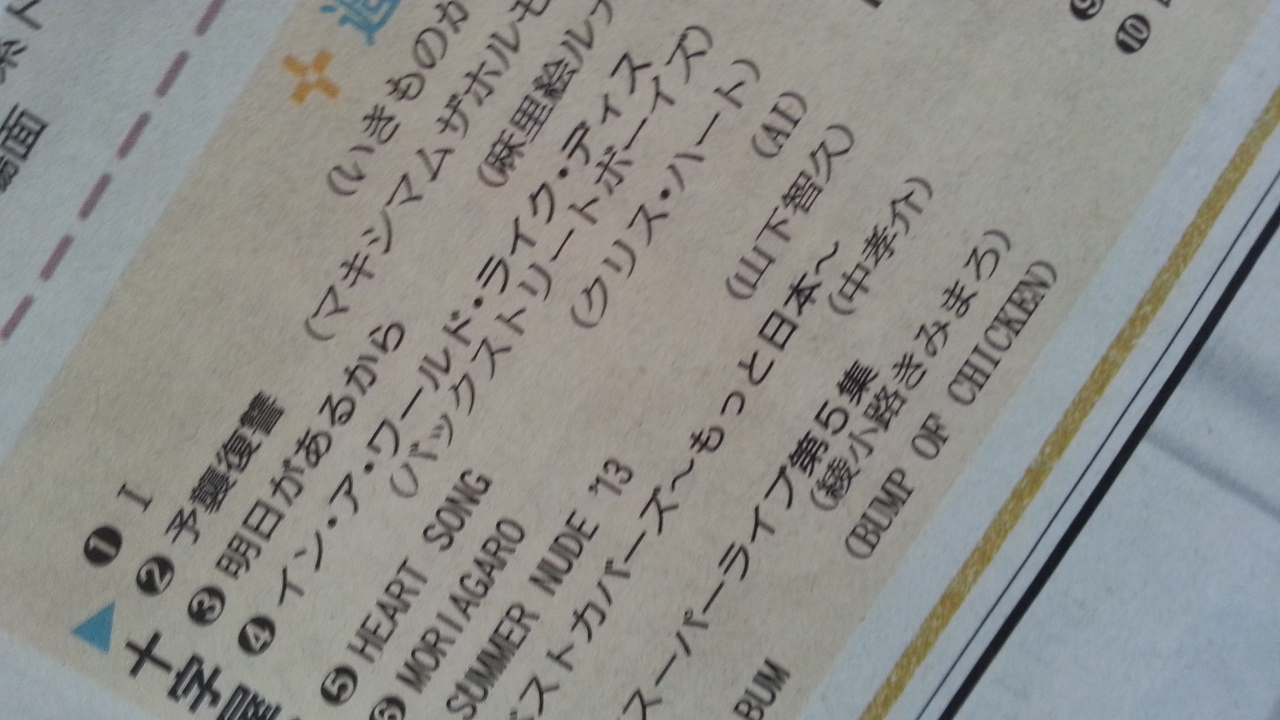 週
(いきものが
❶ I
(マキシマムザホルモ
❷ 予襲復讐
(麻里絵ル
❸ 明日があるから
❹ イン・ア・ワールド・ライク・ディス
(バックストリートボーイズ)
(クリス・ハート)
❺ HEART SONG
(AI)
❻ MORIAGARO
(山下智久)
SUMMER NUDE '13
ベストカバーズ〜もっと日本〜
(中孝介)
スーパーライブ第5集
(綾小路きみまろ)
(BUMP OF CHICKEN)
BUM
❾
❿
十字屋
場面
系ト